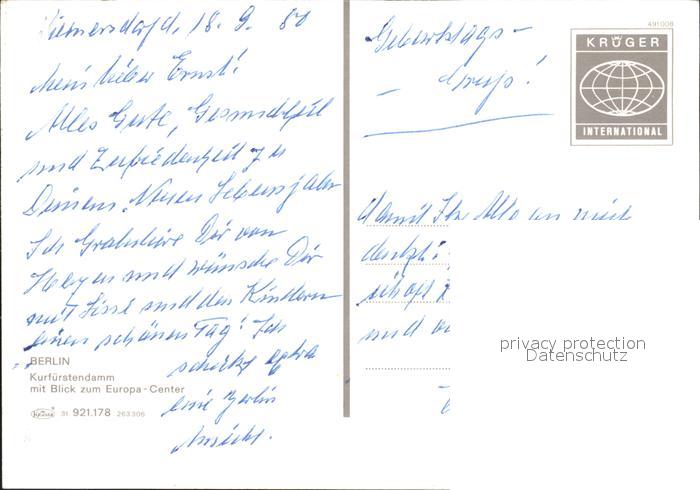 Wilmersdorf d. 18. 9. 80
Mein lieber Ernst!
Alles Gute, Gesundheit
und Zufriedenheit zu
Deinem Neuen Lebensjahr
Ich Gratuliere Dir von
Herzen und wünsche Dir
mit Sissi und den Kindern
einen schönen Tag! Ich
schicke extra
eine Berlin
Ansicht.
BERLIN
Kurfürstendamm
mit Blick zum Europa-Center
KRÜGER 31 921.178 263306
Geburtstags-
- Gruß!
491006
KRÜGER
INTERNATIONAL
damit Ihr Alle an mich
denkt!
und
privacy protection
Datenschutz